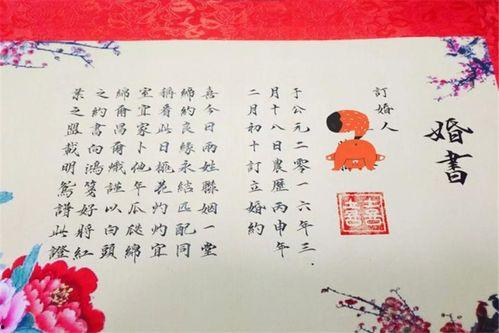 婚書
訂婚人
于公元二零一六年三.
月十八日農歷丙申年
二月初十訂立婚約
喜今日两姓聯姻一堂
締約良緣永結匹配同
稱看此日桃花灼灼宜
室宜家卜他年瓜瓞綿
綿爾昌爾熾謹以白頭
之約書向鴻箋好將紅
葉之盟載明鴛譜此證
囍